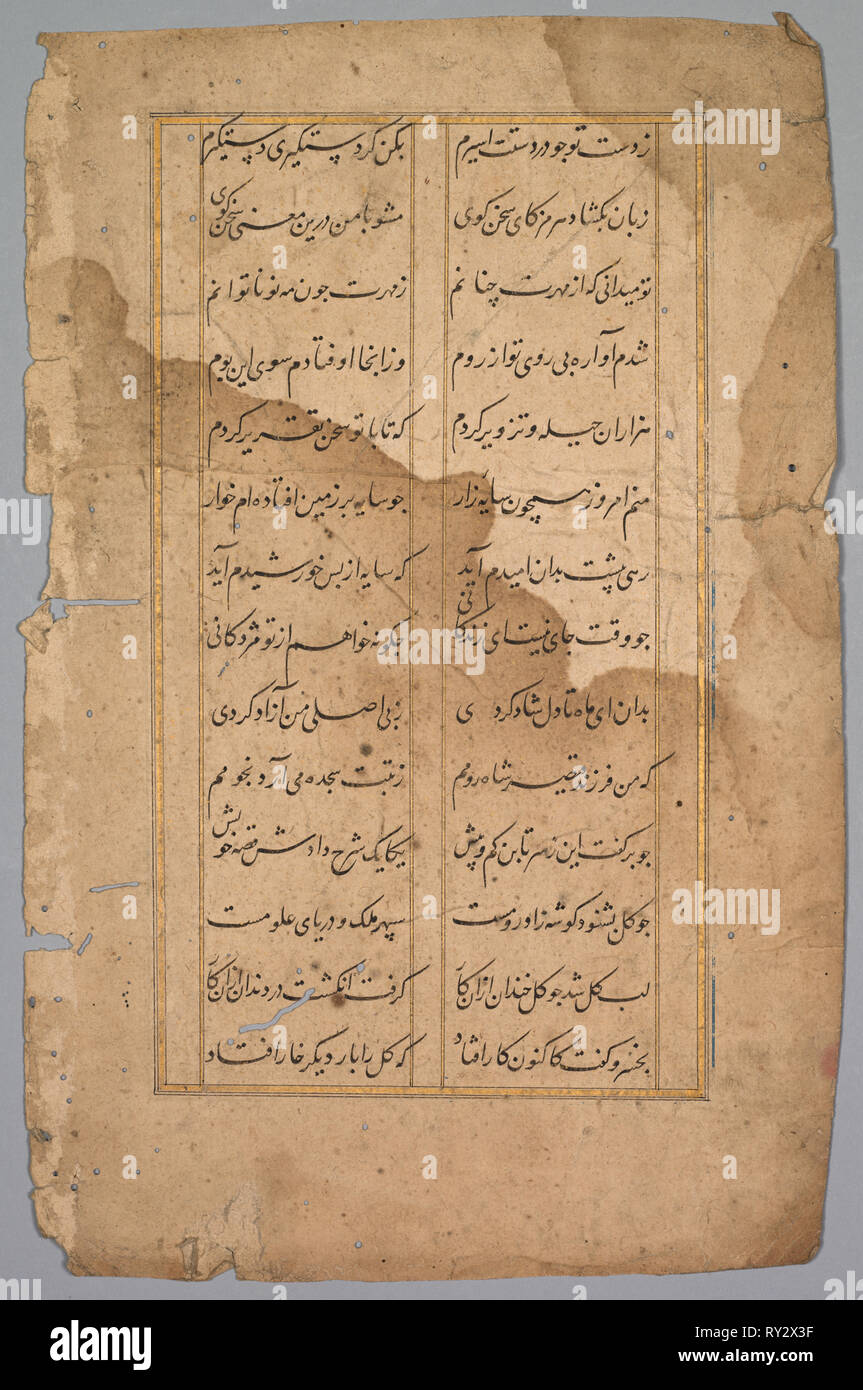 زدست تو جو در دستت اسیرم بکن کرد دستکیری دستکیرم
زبان بکشاد هرمز کای سخن کوی مشو با من درین معنی سخن کوی
تو میدانی که از مهرت چنانم زمهرت جون مه نو ناتوانم
شدم آواره بی روی تو از روم وزانجا اوفتادم سوی این بوم
هزاران حیله و تزویر کردم که تا با تو سخن تقریر کردم
منم امروز همچون سایه زار جو سایه بر زمین افتاده ام خوار
رهی پشت بدان امیدم آید که سایه از پس خورشیدم آید
جو وقت جای نیست ای زندکانی جکونه خواهم از تو مژدکانی
بدان ای ماه تا دل شاد کردی زبی اصلی من آزاد کردی
که من فرزند قیصر شاه رومم زتبت سجده می آرد نجومم
جو برکفت این زسر تا بن کم و بیش یکایک شرح دادش قصه خویش
جو کل بشنود کو شه زاد رومست سپهر ملک و دریای علومست
لب کل شد جو کل خندان ازان کار کرفت انکشت در دندان ازان کار
بخسرو کفت کاکنون کار افتاد که کل را بار دیکر خار افتاد
a alamy
alamy
Image ID: RY2X3F
www.alamy.com